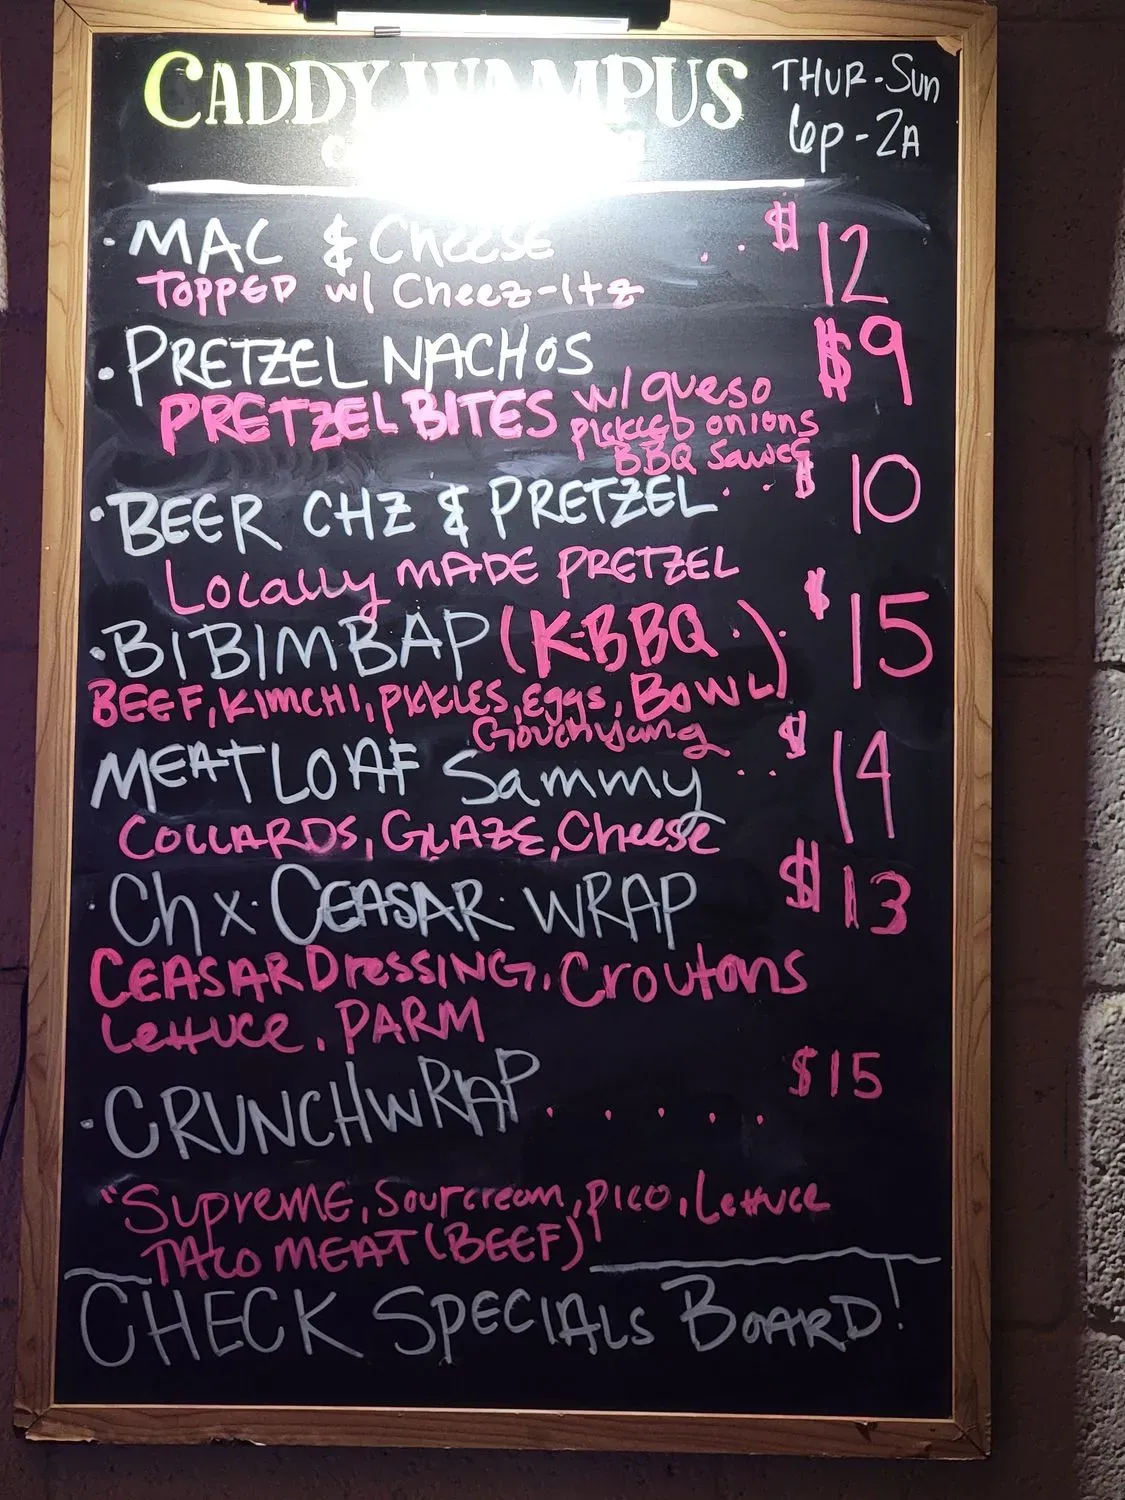 CADDY WAMPUS
THUR-Sun
6p-2A
· MAC & CheESE . . $12
TOPPED w/ Cheez-Itz
· PRETZEL NACHOS $9
PRETZEL BITES w/ queso
PICKLED onions
BBQ Sauce
· BEER CHZ & PRETZEL . . $10
Locally MADE PRETZEL
· BIBIMBAP (K-BBQ . ) . $15
BEEF, KIMCHI, PICKLES, Eggs, BOWL
Gouchyung
MEATLOAF Sammy . . $14
COLLARDS, GLAZE, Cheese
· Chx · CEASAR · WRAP $13
CEASAR DrESSING, Croutons
Lettuce, PARM
· CRUNCHWRAP . . . . . $15
"SupremE, Sourcream, pico, Lettuce
TACO MEAT (BEEF)"
CHECK SPECIALS BOARD!